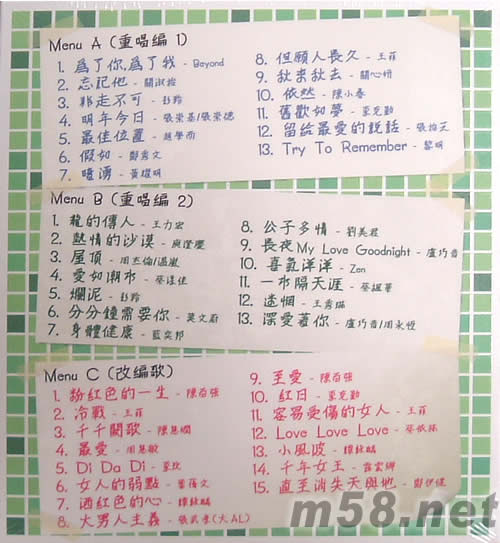 Menu A (重唱編 1)
1. 為了你,為了我 - Beyond
2. 忘記他 - 關淑怡
3. 非走不可 - 彭羚
4. 明年今日 - 張崇基/張崇德
5. 最佳位置 - 趙學而
6. 假如 - 鄭秀文
7. 暗湧 - 黃耀明
8. 但願人長久 - 王菲
9. 秋來秋去 - 關心妍
10. 依然 - 陳小春
11. 舊歡如夢 - 李克勤
12. 留給最愛的說話 - 張柏芝
13. Try To Remember - 黎明
Menu B (重唱編 2)
1. 龍的傳人 - 王力宏
2. 熱情的沙漠 - 庾澄慶
3. 屋頂 - 周杰倫/溫嵐
4. 愛如潮水 - 蔡淳佳
5. 爛泥 - 彭羚
6. 分分鐘需要你 - 莫文蔚
7. 身體健康 - 藍奕邦
8. 公子多情 - 劉美君
9. 長夜My Love Goodnight - 盧巧音
10. 喜氣洋洋 - Zen
11. 一水隔天涯 - 蔡楓華
12. 迷惘 -
13. 深愛著你 - 盧巧音/周永恆
Menu C (改編歌)
1. 粉紅色的一生 - 陳百強
2. 冷戰 - 王菲
3. 千千闕歌 - 陳慧嫻
4. 最愛 - 周慧敏
5. Di Da Di -
6. 女人的弱點 - 葉蒨文
7. 酒紅色的心 - 譚詠麟
8. 大男人主義 - 張武孝(大AL)
9. 至愛 - 陳百強
10. 紅日 - 李克勤
11. 容易受傷的女人 - 王菲
12. Love Love Love - 蔡依林
13. 小風波 - 譚詠麟
14. 千年女王 - 露雲娜
15. 直至消失天與地 - 鄭伊健
m58.net